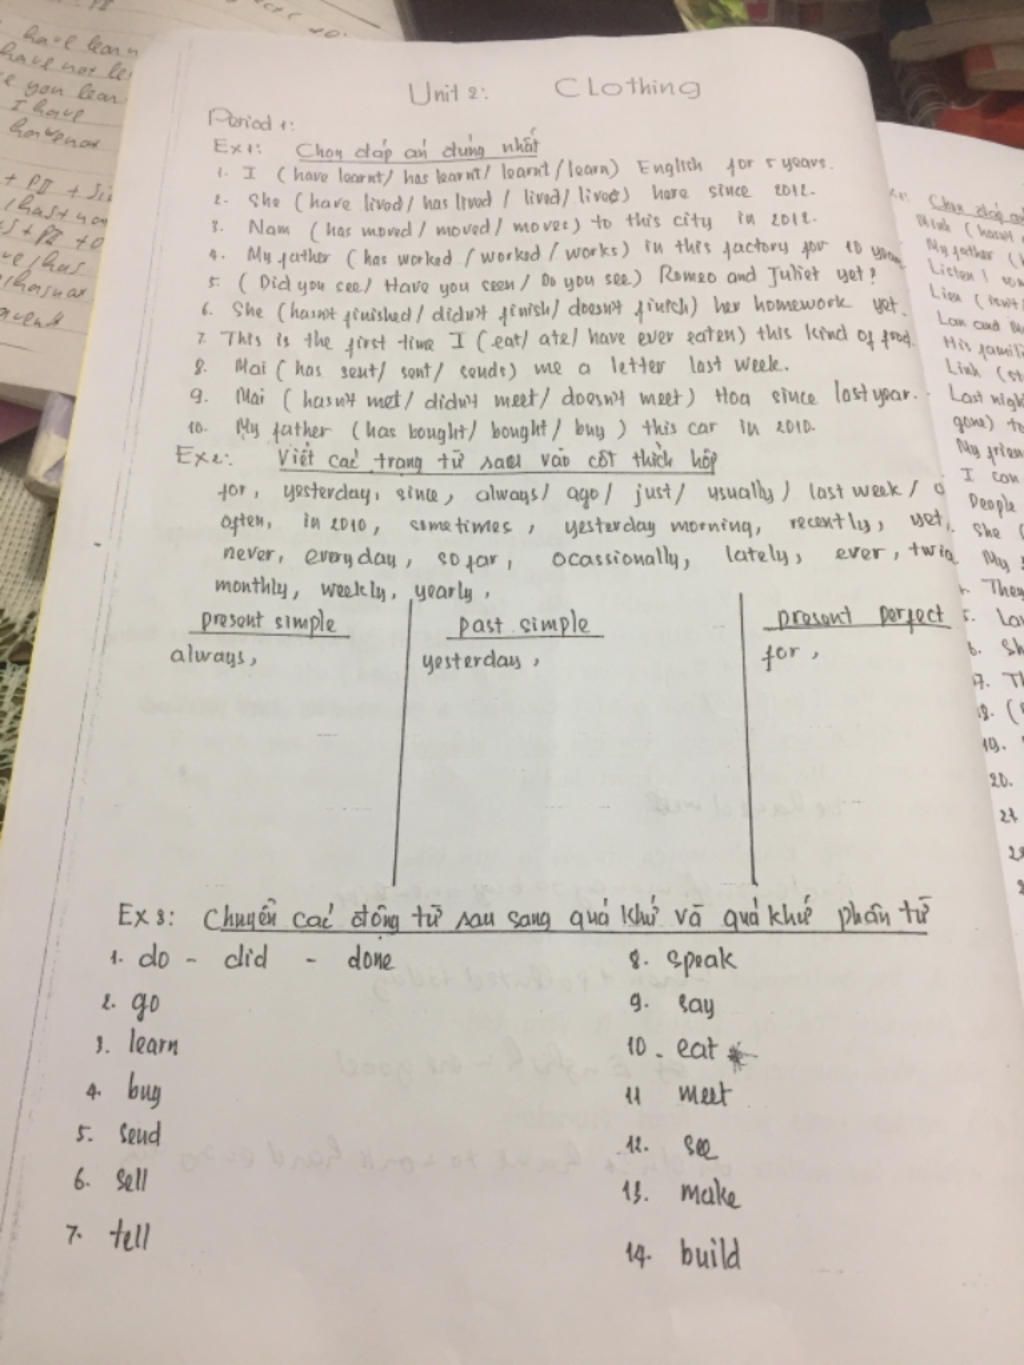 have learn
have not le
you lean
I have
havenot
+ PII +
Unit 2: Clothing
Period 1:
Ex1: Chọn đáp án đúng nhất
1. I (have learnt/ has learnt/ learnt/learn) English for 5 years.
2. She (have lived/ has lived / lived/ lives) here since 2012.
3. Nam (has moved/ moved/ moves) to this city in 2012.
4. My father (has worked / worked / works) in this factory for 10 years
5. ( Did you see/ Have you seen/ Do you see) Romeo and Juliet yet?
6. She (hasn't finished/ didn't finish/ doesn't finish) her homework yet.
7. This is the first time I (eat/ ate/ have ever eaten) this kind of food.
8. Mai ( has sent/ sent/ sends) me a letter last week.
9. Mai ( hasn't met/ didn't meet/ doesn't meet) Hoa since last year.
10. My father (has bought/ bought/ buy ) this car in 2010.
Ex2: Viết các trạng từ sau vào cột thích hợp
for, yesterday, since, always/ ago/ just/ usually/ last week /
often, in 2010, sometimes, yesterday morning, recently, yet,
never, everyday, so far, ocassionally, lately, ever, twic
monthly, weekly, yearly,
present simple past simple present perfect
always, yesterday, for,
Ex 3: Chuyển các động từ sau sang quá khứ và quá khứ phân từ
1. do - did - done
2. go
3. learn
4. buy
5. send
6. sell
7. tell
8. speak
9. say
10. eat
11 meet
12. see
13. make
14. build
Chọn đáp án
Minh (hasn't
My father (
Listen!
Lien (isn't/
Lan and
His famili
Linh (st
Last nigh
gone) to
My frien
I can
People
She (
My
They
5. Lan
6. Sh
17. Th
18. (
19.
20.
21